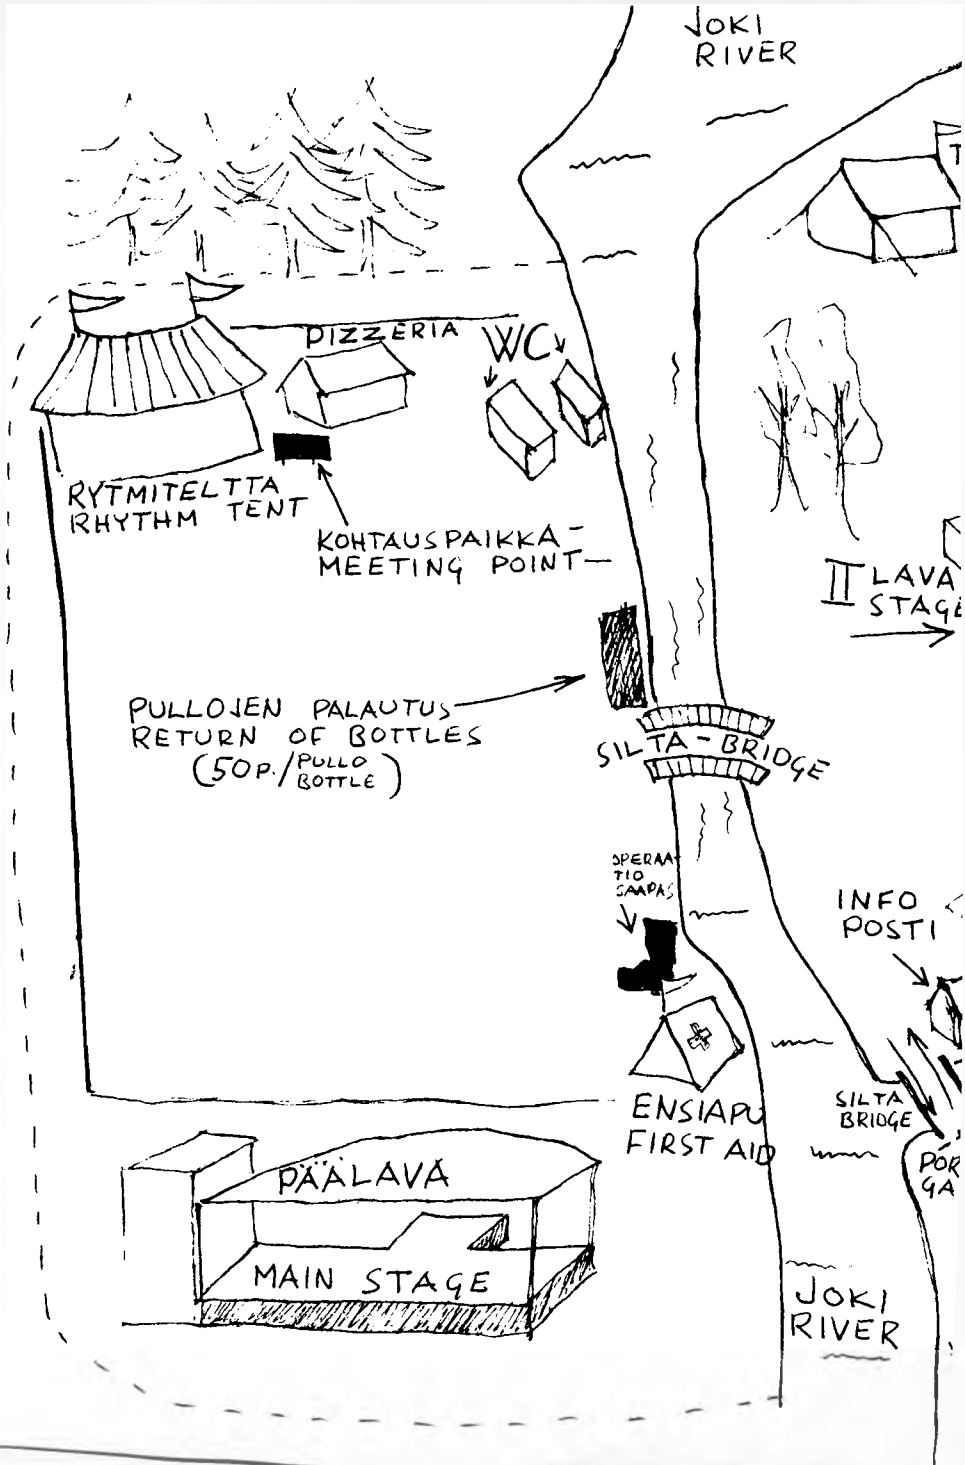 JOKI
RIVER
PIZZERIA
WC
RYTMITELTTA
RHYTHM TENT
KOHTAUSPAIKKA-
MEETING POINT-
II LAVA
STAGE
PULLOJEN PALAUTUS
RETURN OF BOTTLES
(50P./PULLO
BOTTLE)
SILTA-BRIDGE
OPERAA-
TIO
SAAPAS
INFO
POSTI
SILTA
BRIDGE
ENSIAPU
FIRST AID
PÄÄLAVA
MAIN STAGE
JOKI
RIVER